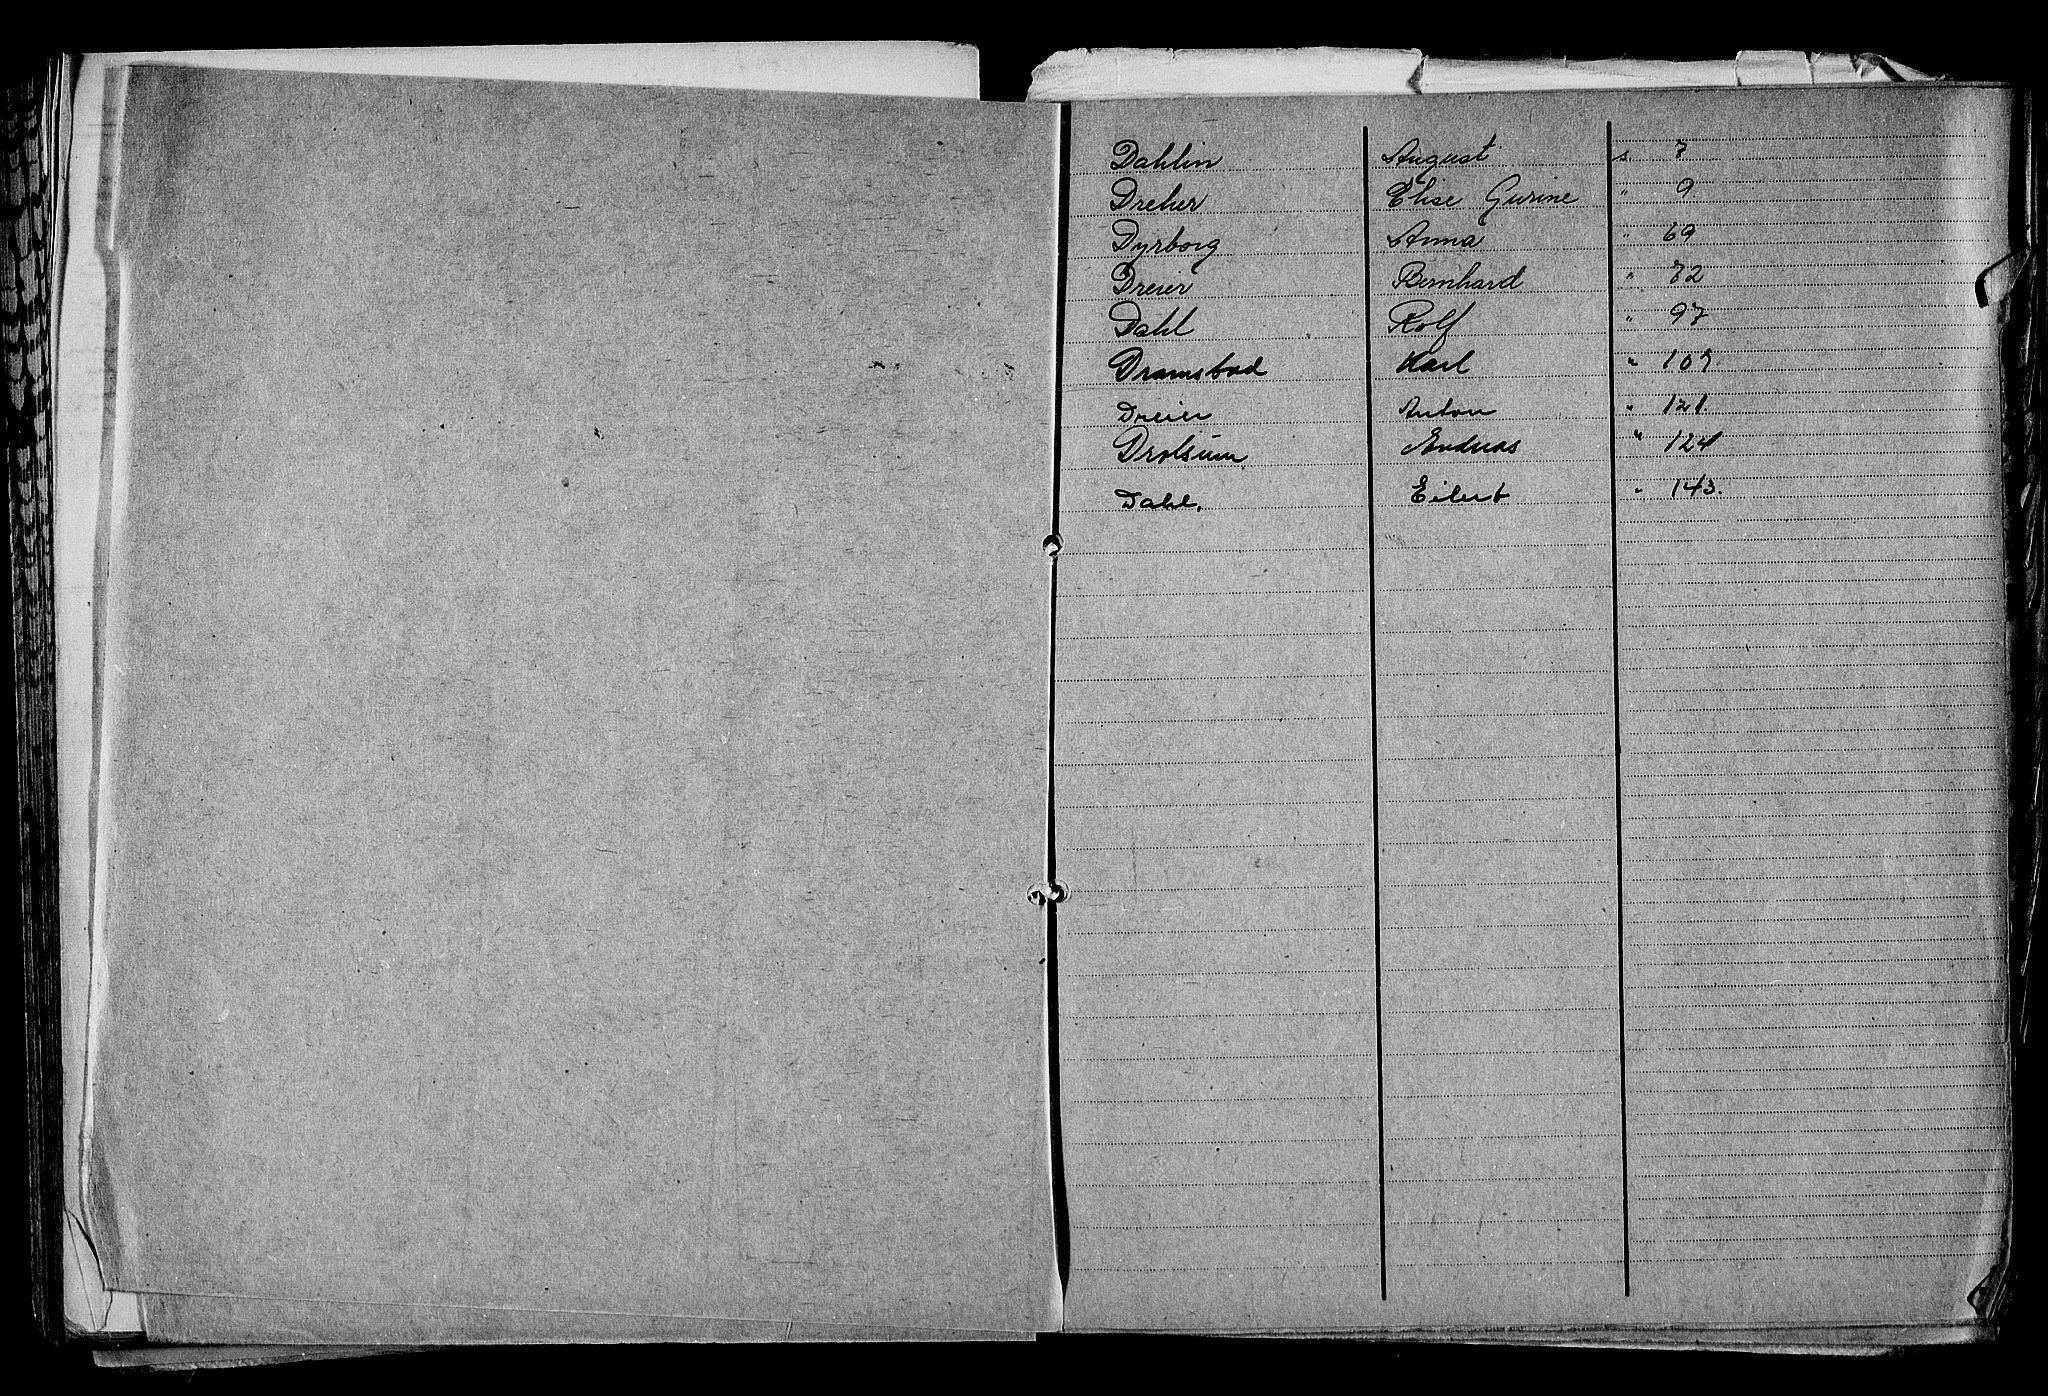 Dahlin August s 7
Dreher Elise Gurine " 9
Dyrborg Anna " 69
Dreier Bernhard " 72
Dahl Rolf " 97
Dramstad Karl " 107.
Dreier Anton " 121.
Drolsum Andreas " 124
Dahl. Eilert " 143.